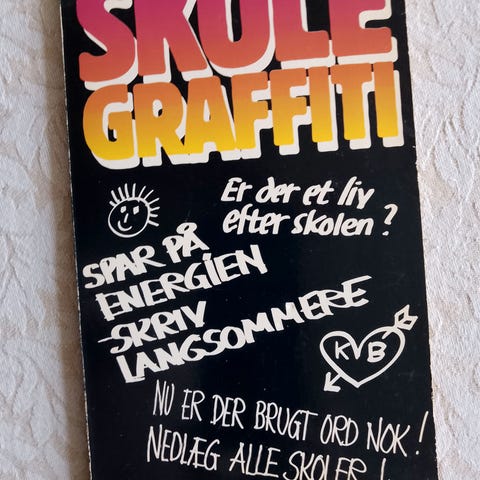 SKOLE
GRAFFITI
Er der et liv
efter skolen?
SPAR PÅ
ENERGIEN
-SKRIV
LANGSOMMERE
K V B
NU ER DER BRUGT ORD NOK!
NEDLÆG ALLE SKOLER!